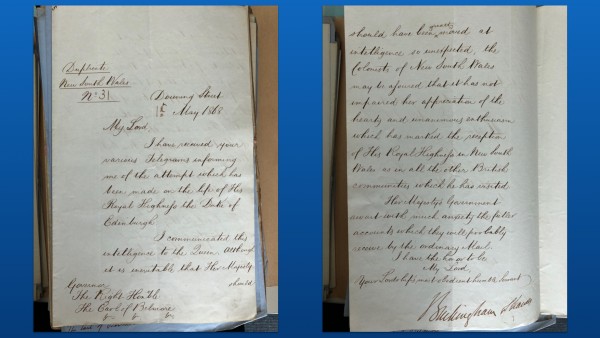 Duplicate
New South Wales
No. 31
Downing Street
May 1868
My Lord,
I have received your
various Telegrams informing
me of the attempt which has
been made on the life of His
Royal Highness the Duke of
Edinburgh.
I communicated this
intelligence to the Queen. Although
it is inevitable that Her Majesty
should
Governor
The Right Honble
The Earl of Belmore
should have been great moved at
intelligence so unexpected, the
Colonists of New South Wales
may be assured that it has not
impaired her appreciation of the
hearty and unanimous enthusiasm
which has marked the reception
of His Royal Highness in New South
Wales as in all the other British
communities which he has visited.
Her Majesty's Government
await with much anxiety the fuller
accounts which they will probably
receive by the ordinary Mail.
I have the honor to be
My Lord,
Your Lordship's most obedient humble Servant
Buckingham & Chandos